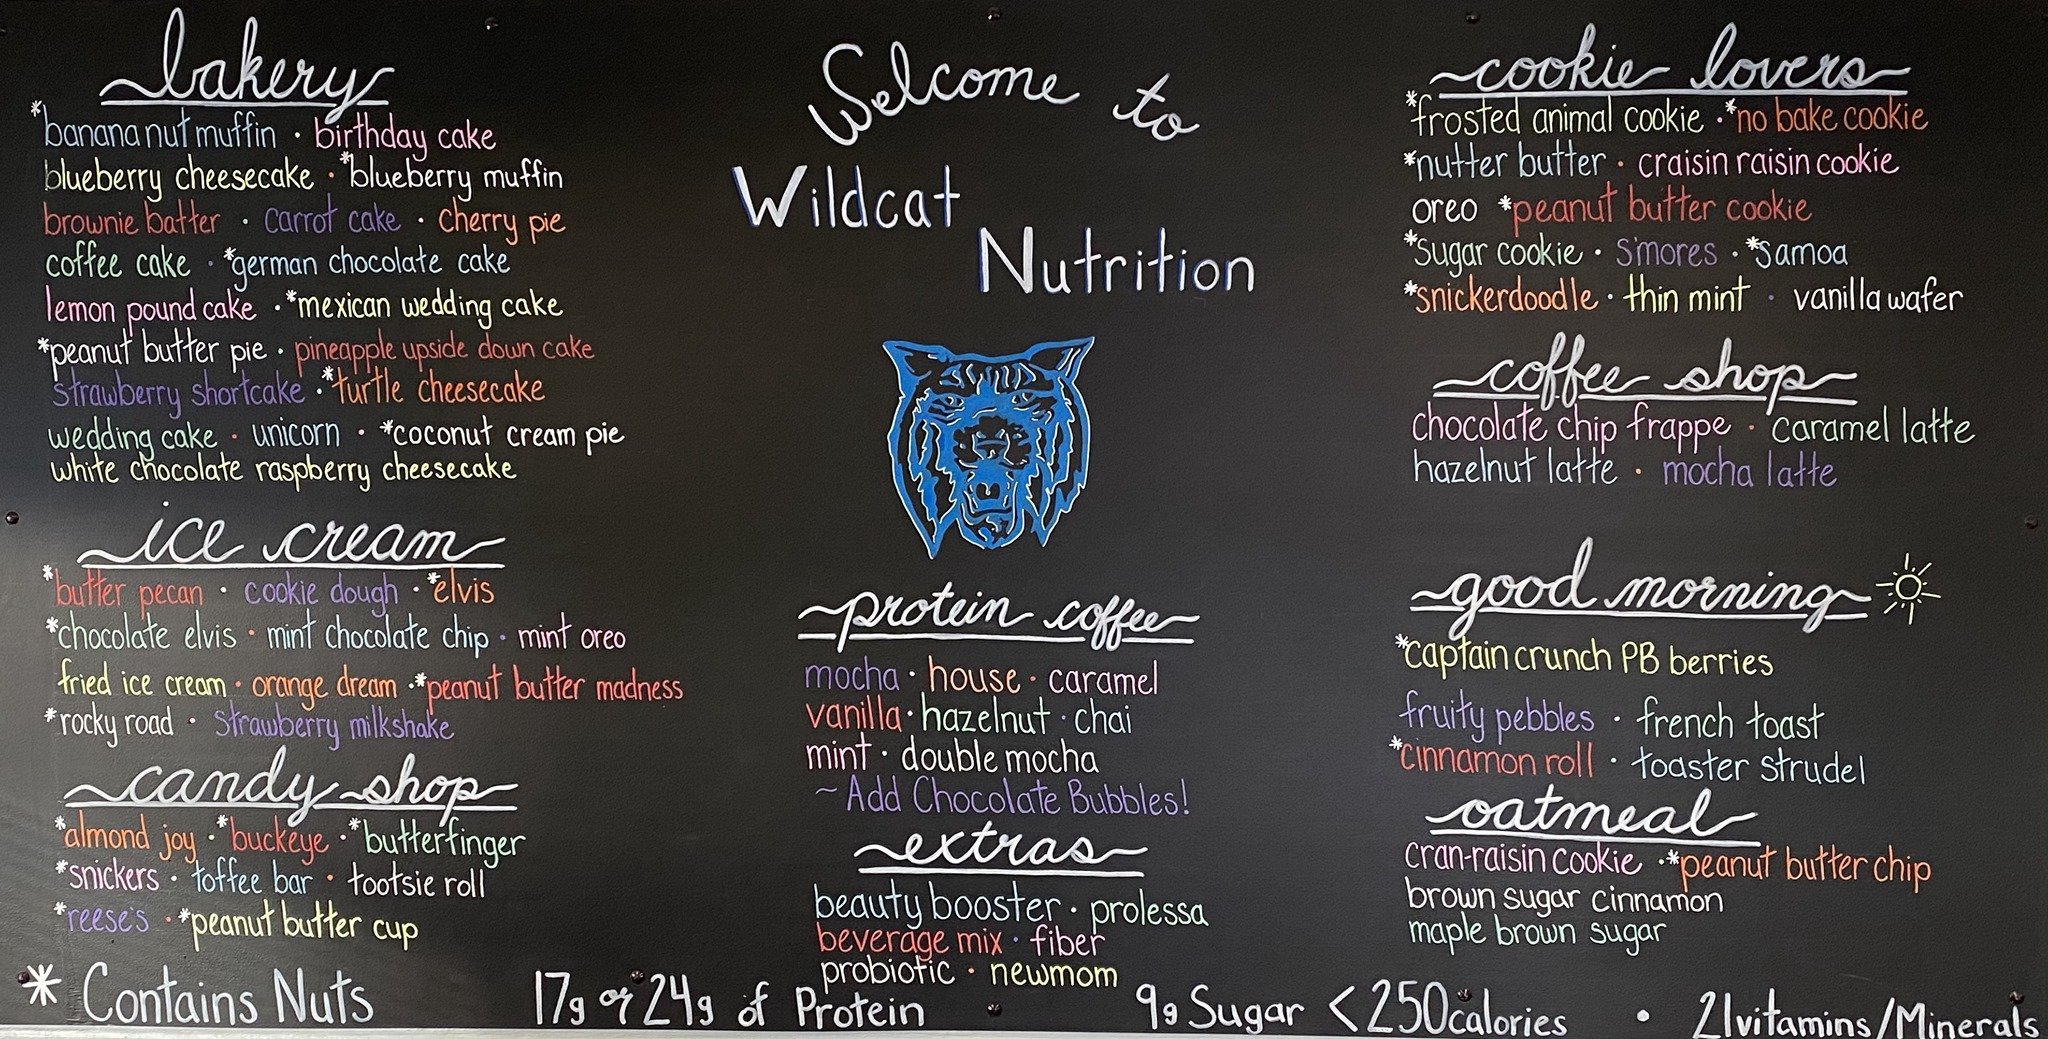 bakery
*banana nut muffin · birthday cake
blueberry cheesecake · *blueberry muffin
brownie batter · carrot cake · cherry pie
coffee cake · *german chocolate cake
lemon pound cake · *mexican wedding cake
*peanut butter pie · pineapple upside down cake
strawberry shortcake · *turtle cheesecake
wedding cake · unicorn · *coconut cream pie
white chocolate raspberry cheesecake
ice cream
*butter pecan · cookie dough · *elvis
*chocolate elvis · mint chocolate chip · mint oreo
fried ice cream · orange dream · *peanut butter madness
*rocky road · strawberry milkshake
candy shop
*almond joy · *buckeye · *butterfinger
*snickers · toffee bar · tootsie roll
*reese's · *peanut butter cup
Welcome to
Wildcat
Nutrition
protein coffee
mocha · house · caramel
vanilla · hazelnut · chai
mint · double mocha
~ Add Chocolate Bubbles!
extras
beauty booster · prolessa
beverage mix · fiber
probiotic · newmom
cookie lovers
*frosted animal cookie · *no bake cookie
*nutter butter · craisin raisin cookie
oreo *peanut butter cookie
*sugar cookie · s'mores · *samoa
*snickerdoodle · thin mint · vanilla wafer
coffee shop
chocolate chip frappe · caramel latte
hazelnut latte · mocha latte
good morning
*captain crunch PB berries
fruity pebbles · french toast
*cinnamon roll · toaster strudel
oatmeal
cran-raisin cookie · *peanut butter chip
brown sugar cinnamon
maple brown sugar
* Contains Nuts 17g or 24g of Protein 9g Sugar <250calories · 21vitamins/Minerals